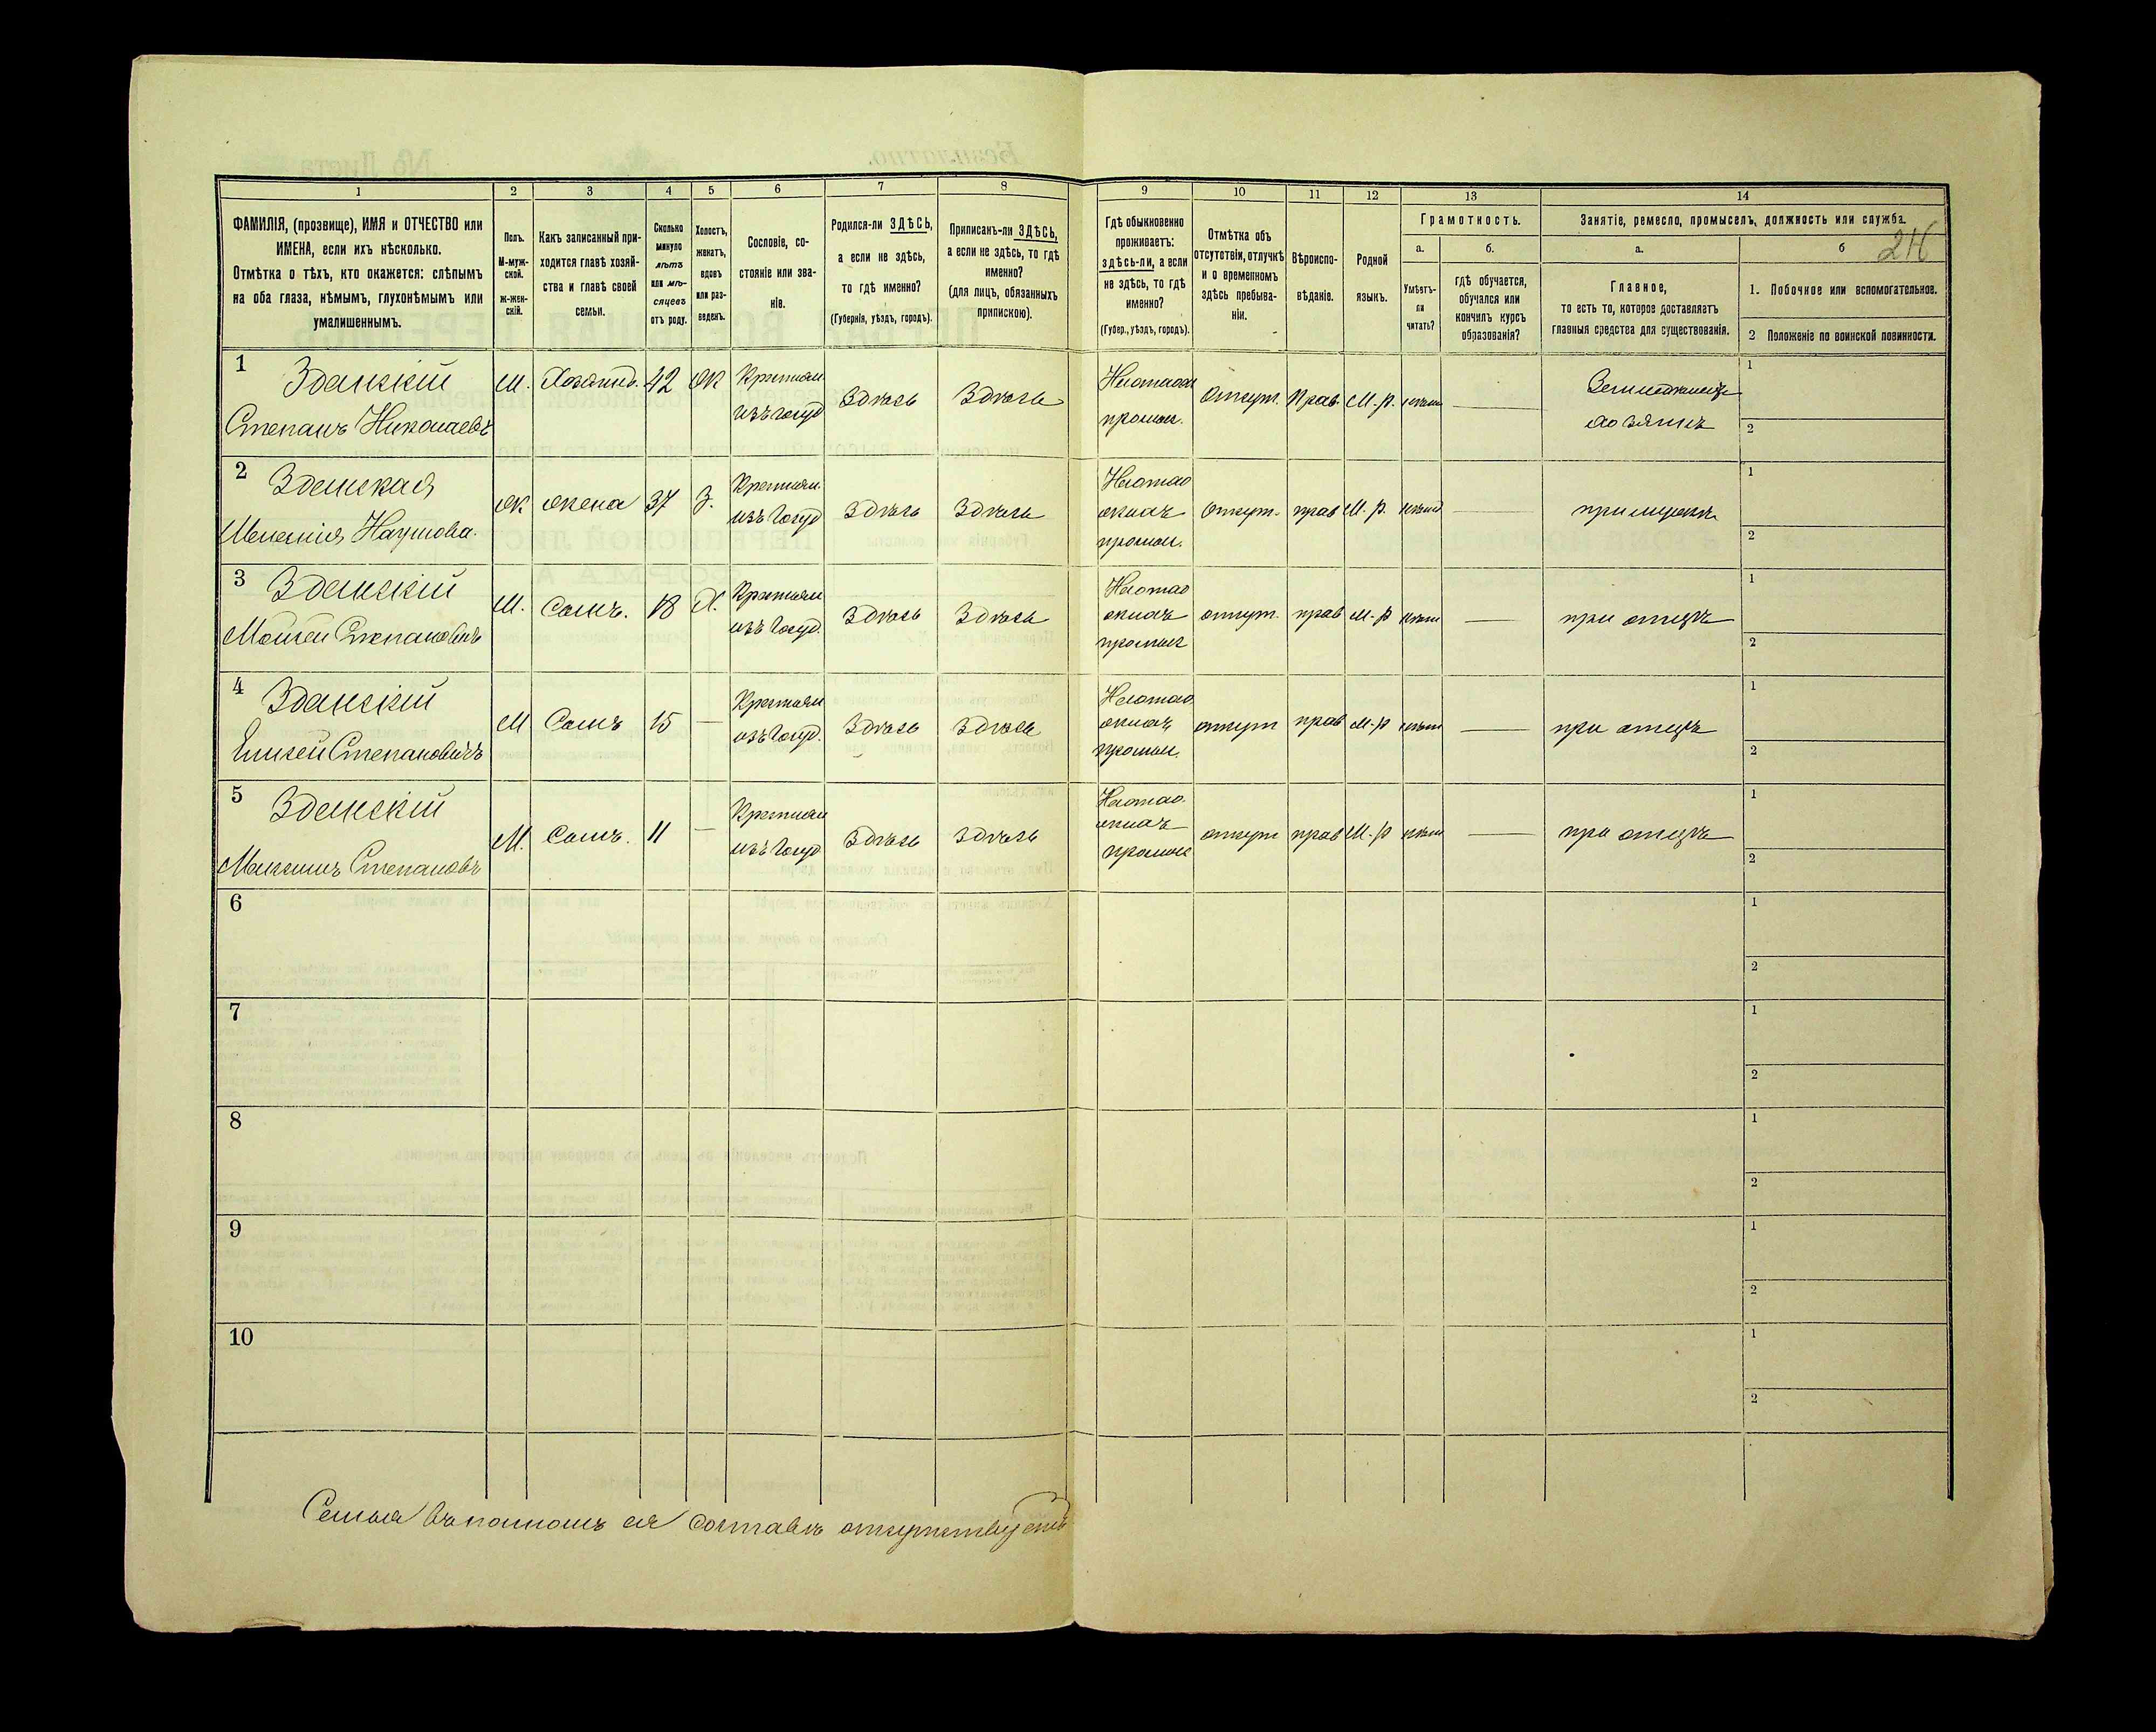 1 2 3 4 5 6 7 8 9 10 11 12 13 14
ФАМИЛІЯ, (прозвище), ИМЯ и ОТЧЕСТВО или
ИМЕНА, если ихъ нѣсколько.
Отмѣтка о тѣхъ, кто окажется: слѣпымъ
на оба глаза, нѣмымъ, глухонѣмымъ или
умалишеннымъ.
Полъ.
М-муж-
ской.
ж-жен-
скій.
Какъ записанный при-
ходится главѣ хозяй-
ства и главѣ своей
семьи.
Сколько
минуло
лѣтъ
или мѣ-
сяцевъ
отъ роду.
Холостъ,
женатъ,
вдовъ
или раз-
веденъ.
Сословіе, со-
стояніе или зва-
ніе.
Родился-ли ЗДѢСЬ,
а если не здѣсь,
то гдѣ именно?
(Губернія, уѣздъ, городъ).
Приписанъ-ли ЗДѢСЬ,
а если не здѣсь, то гдѣ
именно?
(для лицъ, обязанныхъ
припискою).
Гдѣ обыкновенно
проживаетъ:
здѣсь-ли, а если
не здѣсь, то гдѣ
именно?
(Губер., уѣздъ, городъ).
Отмѣтка объ
отсутствіи, отлучкѣ
и о временномъ
здѣсь пребыва-
ніи.
Вѣроиспо-
вѣданіе.
Родной
языкъ.
Грамотность.
а.
Умѣетъ-
ли
читать?
б.
гдѣ обучается,
обучался или
кончилъ курсъ
образованія?
Занятіе, ремесло, промыселъ, должность или служба.
а.
Главное,
то есть то, которое доставляетъ
главныя средства для существованія.
б
1. Побочное или вспомогательное.
2 Положеніе по воинской повинности.
1
Зданскій
Степанъ Николаевъ
М. Хозяинъ. 42 Ж
Крестьян.
изъ Госуд
Здѣсь Здѣсь
промы.
Отсут. Прав. М.-р.
хозяинъ
1
2
2
Зданская
Наумова.
Ж жена 37 З.
Крестьян.
изъ Госуд
Здѣсь Здѣсь
промы.
Отсут. прав М.-р.
при мужѣ
1
2
3
Зданскій
Моисей Степановичъ
М. Сынъ. 18 Х.
Крестьян
изъ Госуд.
Здѣсь Здѣсь
отсут. прав М-р
при отцѣ
1
2
4
Зданскій
Елисей Степановичъ
М Сынъ 15 —
Крестьян
изъ Госуд.
Здѣсь Здѣсь
промы.
отсут прав М-р
при отцѣ
1
2
5
Зданскій
Максимъ Степановъ
М. Сынъ. 11 —
Крестьян
изъ Госуд
Здѣсь Здѣсь
отсут прав М-р
при отцѣ
1
2
6
1
2
7
1
2
8
1
2
9
1
2
10
1
2
Семья въ полномъ ея составѣ отсутствуетъ